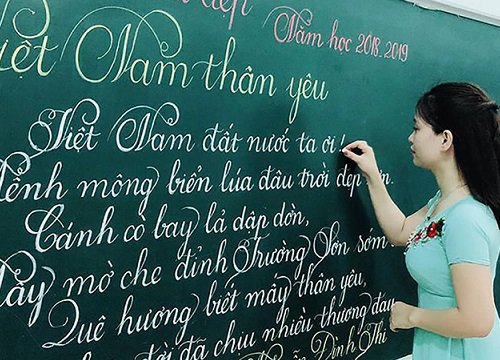 đẹp
Năm học 2018-2019
Việt Nam thân yêu
Việt Nam đất nước ta ơi!
Mênh mông biển lúa đâu trời đẹp hơn.
Cánh cò bay lả dập dờn,
Mây mờ che đỉnh Trường Sơn sớm
Quê hương biết mấy thân yêu,
đời đã chịu nhiều thương đau
Đình Thi